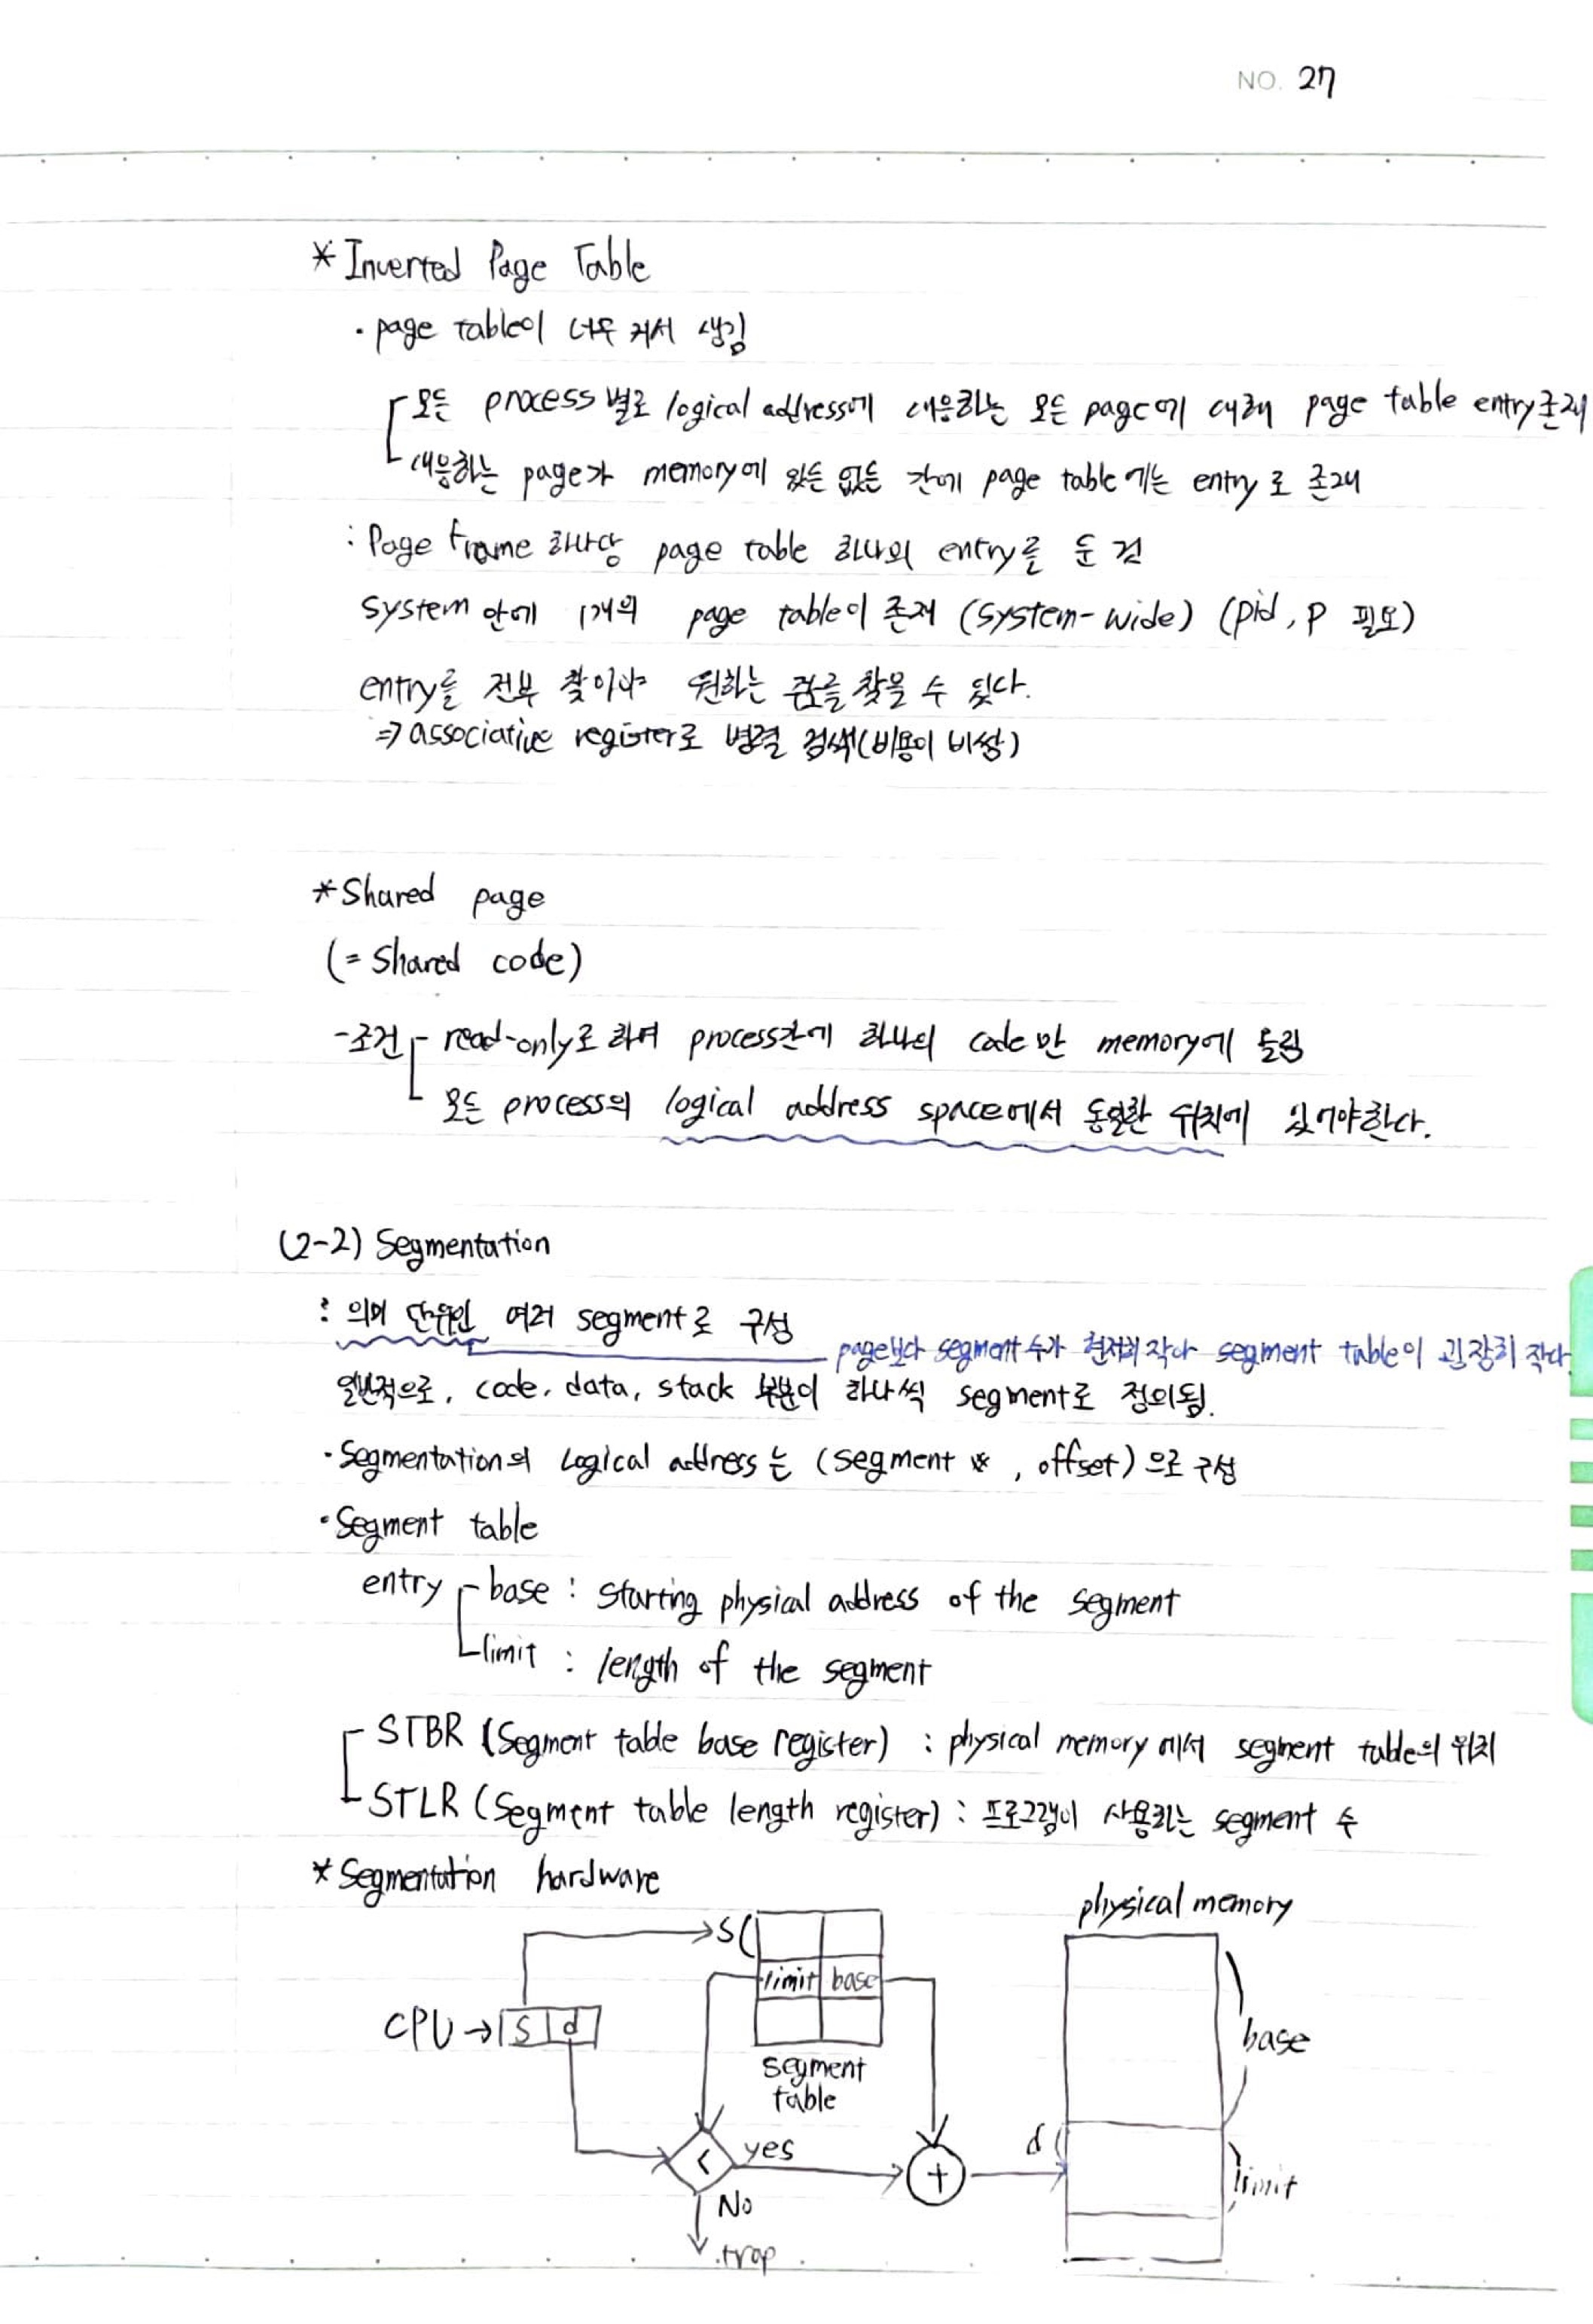 NO. 27
* Inverted Page Table
· page table이 너무 커서 생김
모든 process별로 logical address에 대응하는 모든 page에 대해 page table entry 존재
대응하는 page가 memory에 있든 없든 간에 page table에는 entry로 존재
: Page frame 하나당 page table 하나의 entry를 둔 것
system 안에 1개의 page table이 존재 (system-wide) (pid, p 필요)
entry를 전부 찾아야 원하는 값을 찾을 수 있다.
⇒ associative register로 병렬 검색(비용이 비쌈)
* Shared page
(= Shared code)
- 조건 read-only로 하며 process간에 하나의 code만 memory에 올림
모든 process의 logical address space에서 동일한 위치에 있어야한다.
(2-2) Segmentation
: 의미 단위인 여러 segment로 구성
page보다 segment 수가 현저히 작아 segment table이 굉장히 작다
일반적으로, code, data, stack 부분이 하나씩 segment로 정의됨.
· Segmentation의 Logical address는 (segment #, offset)으로 구성
· Segment table
entry base : starting physical address of the segment
limit : length of the segment
STBR (Segment table base register) : physical memory에서 segment table의 위치
STLR (Segment table length register) : 프로그램이 사용하는 segment 수
* Segmentation hardware
physical memory
S
limit base
CPU → S d
base
segment
table
d
< yes
+
limit
No
trap